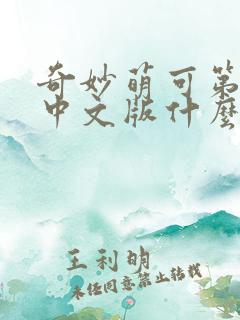 奇妙萌可第
中文版什麼
王利明
未经同意禁止转载